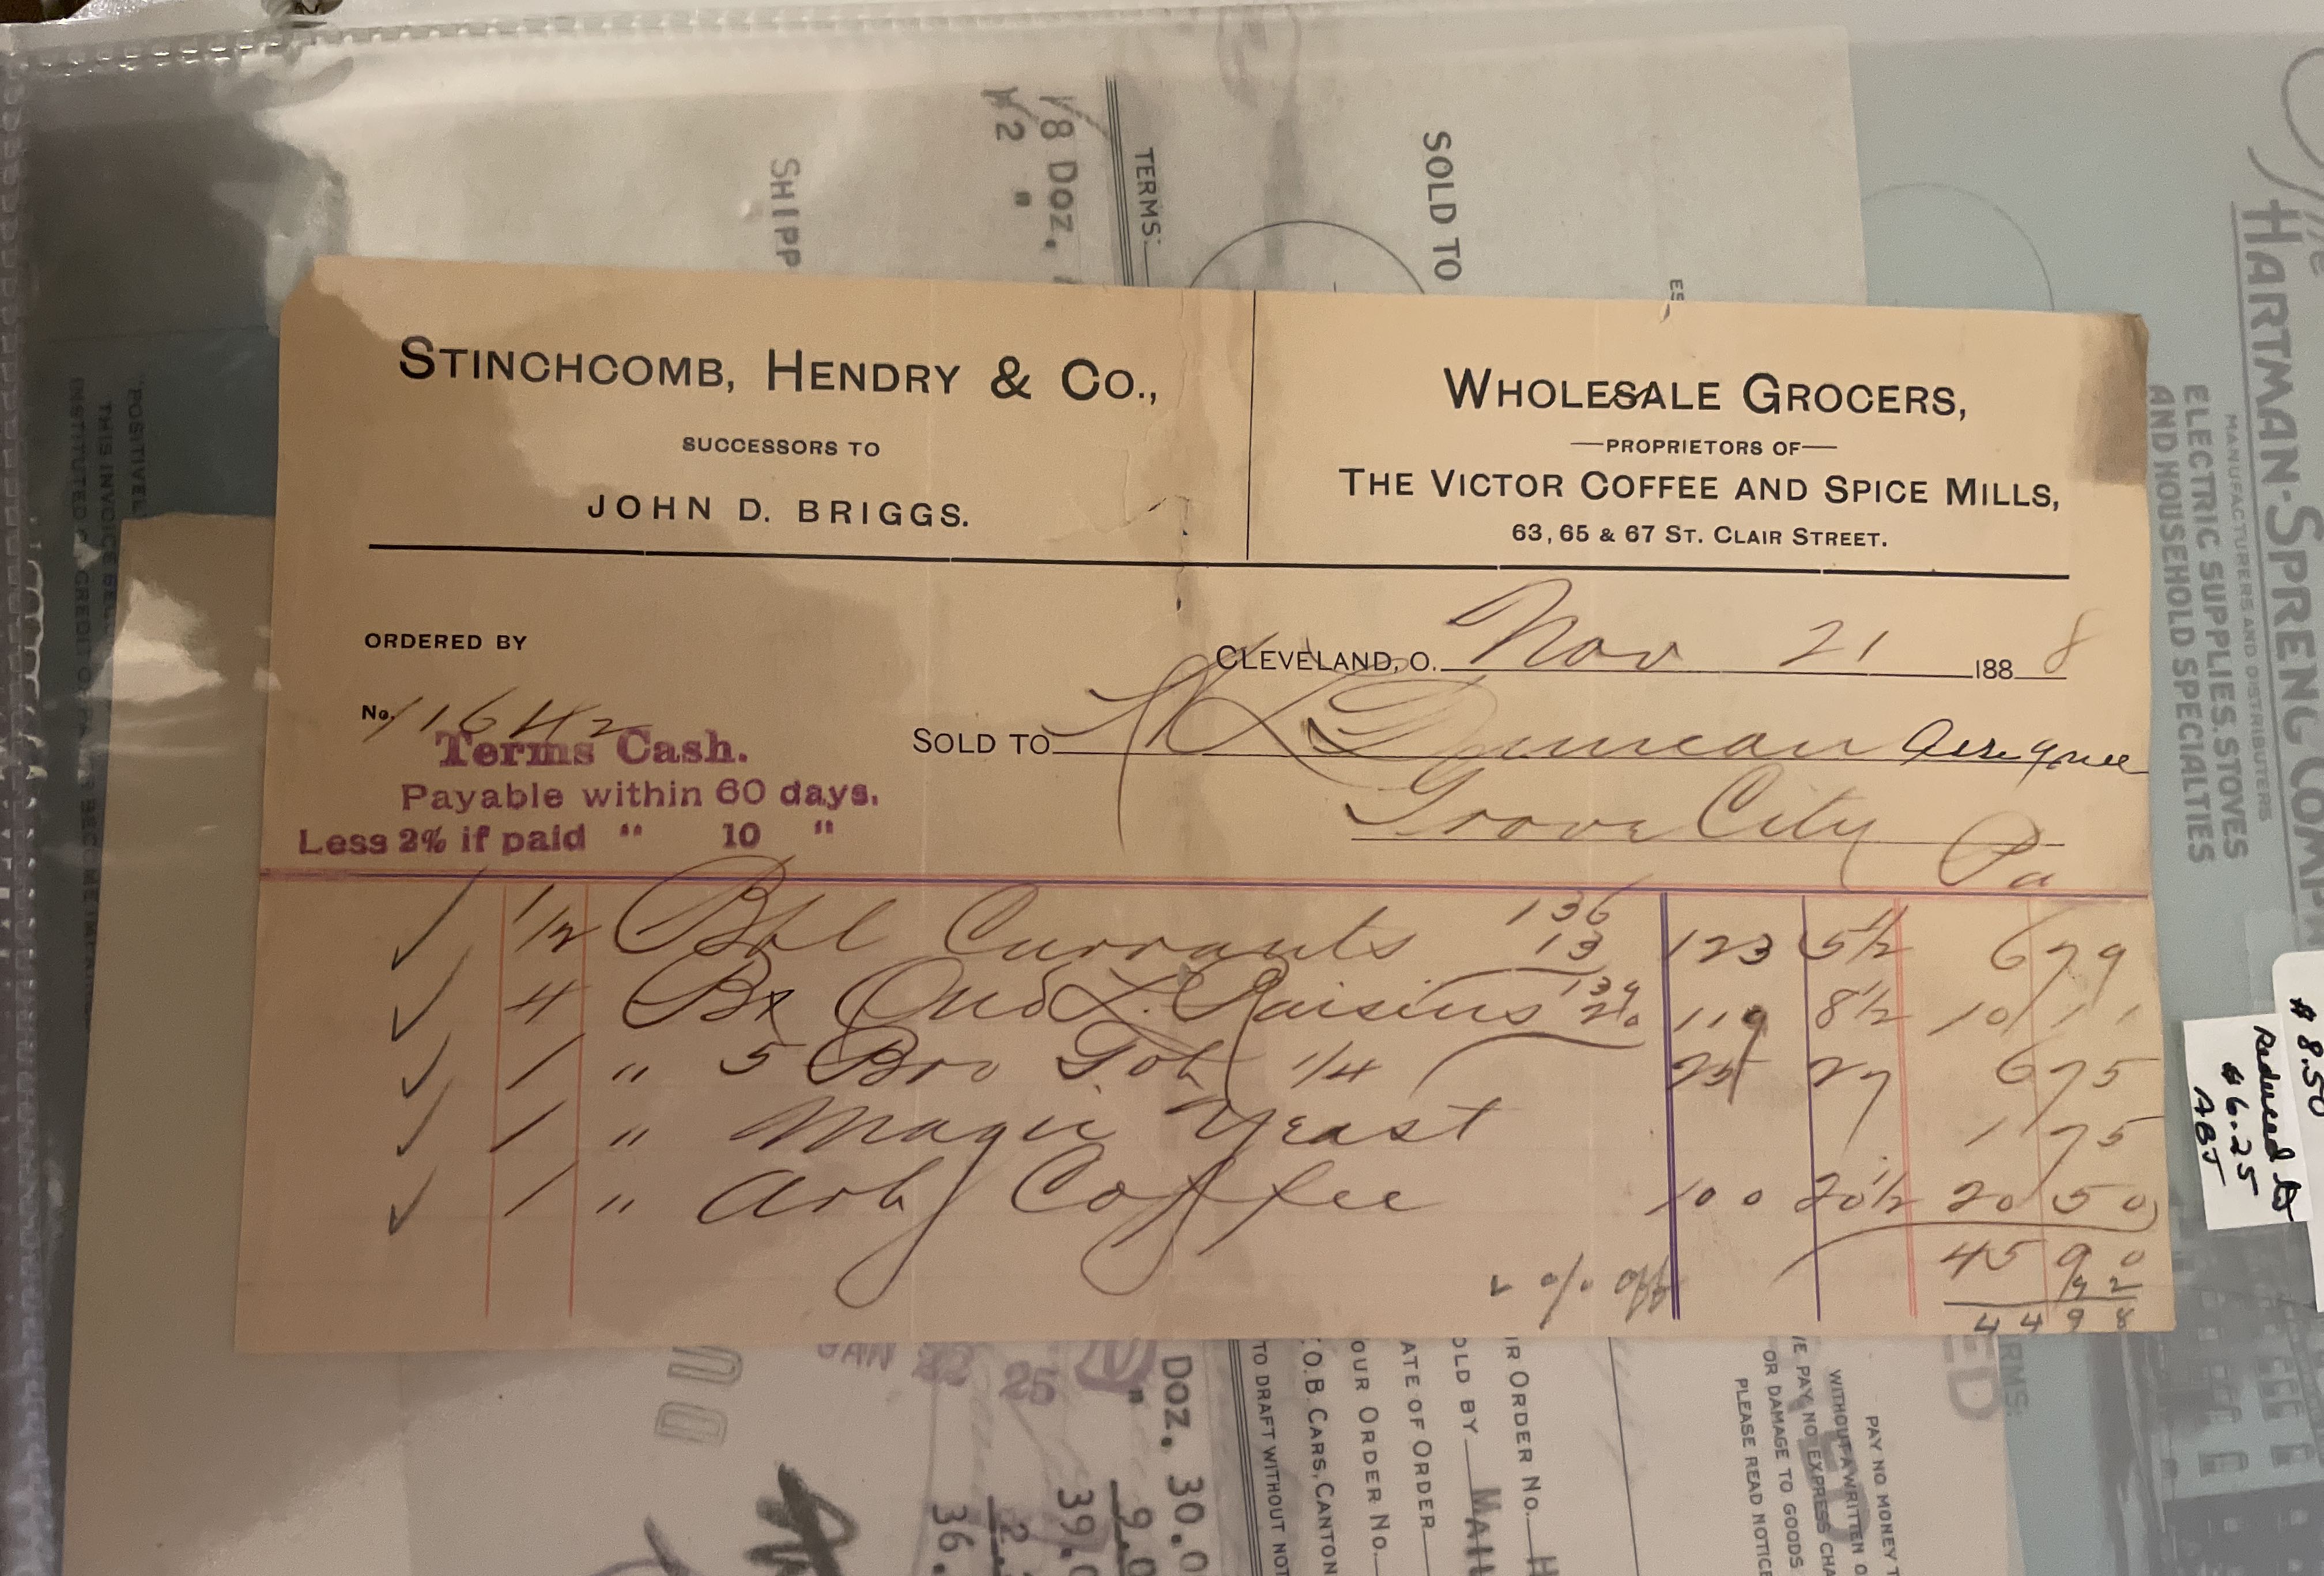 STINCHCOMB, HENDRY & CO.,
SUCCESSORS TO
JOHN D. BRIGGS.
WHOLESALE GROCERS,
—PROPRIETORS OF—
THE VICTOR COFFEE AND SPICE MILLS,
63, 65 & 67 ST. CLAIR STREET.
ORDERED BY
CLEVELAND, O. Nov 21 1888
No. 11642
SOLD TO Duncan Assignee
Grove City Pa
Terms Cash.
Payable within 60 days.
Less 2% if paid " 10 "
136
1/2 Bbl Currants 13 123 5 1/2 6 79
139
4 Bx Ond L. Raisins 20 119 8 1/2 10 11
1 " 5 Bro Tob 1/4 25 27 6 75
1 " Magic Yeast 1 75
1 " Arb Coffee 100 20 1/2 20 50
45 90
% off 92
44 98
SHIPP
1/8 Doz.
1/2 "
TERMS:
SOLD TO
The
HARTMAN-SPRENG COMPA
MANUFACTURERS AND DISTRIBUTERS
ELECTRIC SUPPLIES, STOVES
AND HOUSEHOLD SPECIALTIES
$8.50
Reduced to
$6.25
ABJ
POSITIVEL
THIS INVOICE
JAN 22 25
Doz. 30.0
" 9.0
39.0
2.
36.
TO DRAFT WITHOUT NOT
.O.B. CARS, CANTON
OUR ORDER No.
ATE OF ORDER
OLD BY MAIL
R ORDER No. H
RMS:
PAY NO MONEY T
WITHOUT A WRITTEN O
E PAY NO EXPRESS CHA
OR DAMAGE TO GOODS
PLEASE READ NOTICE